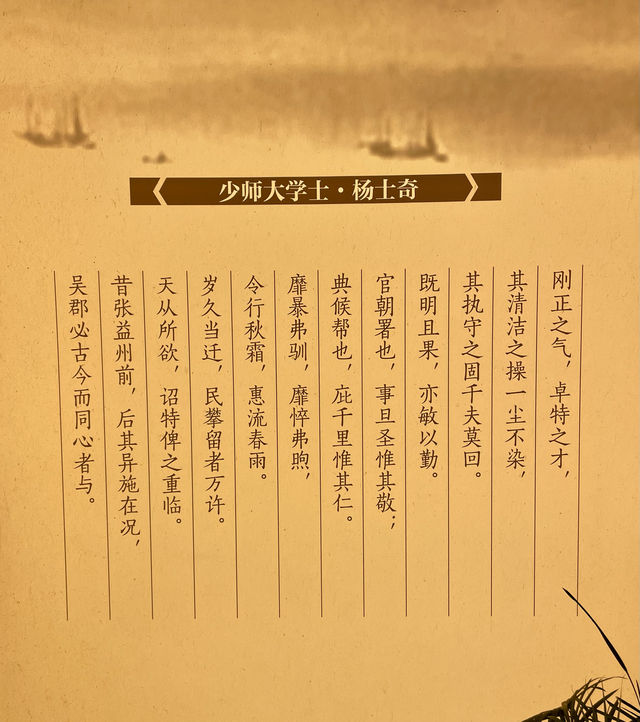 少师大学士·杨士奇
刚正之气，卓特之才，
其清洁之操一尘不染，
其执守之固千夫莫回。
既明且果，亦敏以勤。
官朝署也，事旦圣惟其敬；
典候帮也，庇千里惟其仁。
靡暴弗驯，靡悴弗煦，
令行秋霜，惠流春雨。
岁久当迁，民攀留者万许。
天从所欲，诏特俾之重临。
昔张益州前，后其异施在况，
吴郡必古今而同心者与。